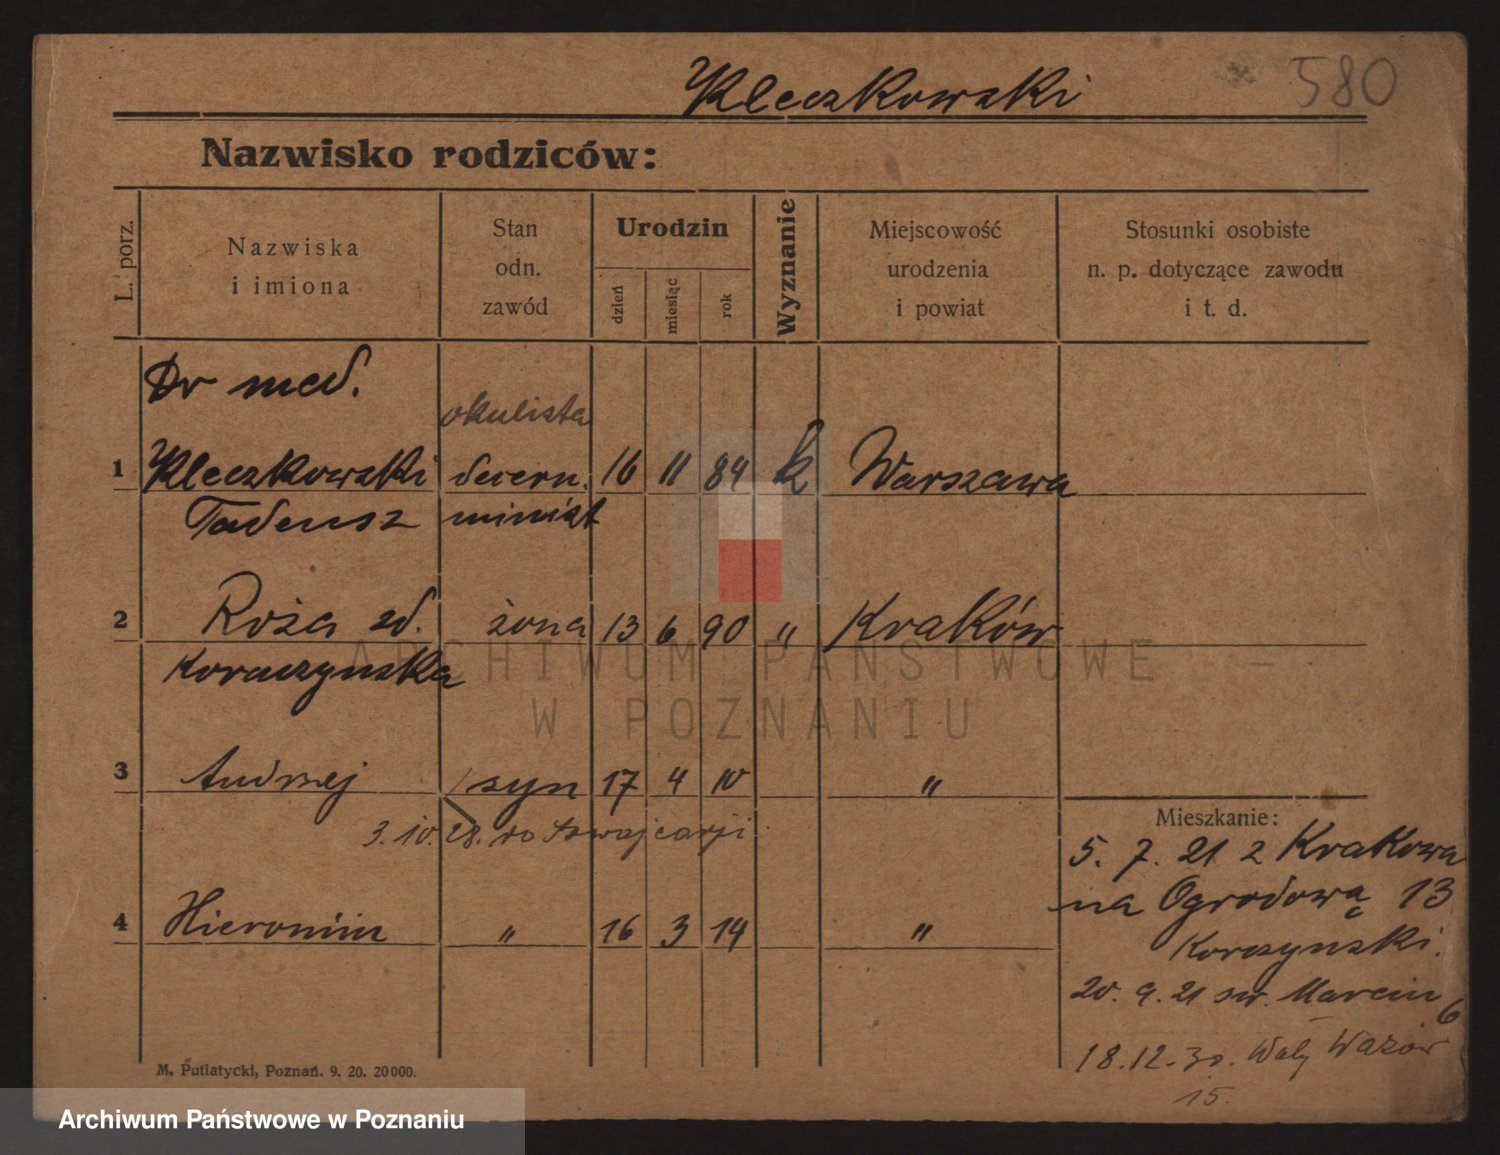 Kleczkowski 580
Nazwisko rodziców:
L. porz.
Nazwiska
i imiona
Stan
odn.
zawód
Urodzin
dzień
miesiąc
rok
Wyznanie
Miejscowość
urodzenia
i powiat
Stosunki osobiste
n. p. dotyczące zawodu
i t. d.
Dr med.
okulista
1 Kleczkowski decern. 16 11 84 k Warszawa
Tadeusz minist
2 Róża zd. żona 13 6 90 " Kraków
Korczyńska
3 Andrzej syn 17 4 10 "
3. 10. 28. do Szwajcarji
4 Hieronim " 16 3 14 "
Mieszkanie:
5. 7. 21 z Krakowa
na Ogrodową 13
Korczynski.
20. 9. 21 św. Marcin 6
18.12.30. Wały Wazów
15.
M, Putiatycki, Poznań. 9. 20. 20000.
ARCHIWUM PAŃSTWOWE –
W POZNANIU
Archiwum Państwowe w Poznaniu